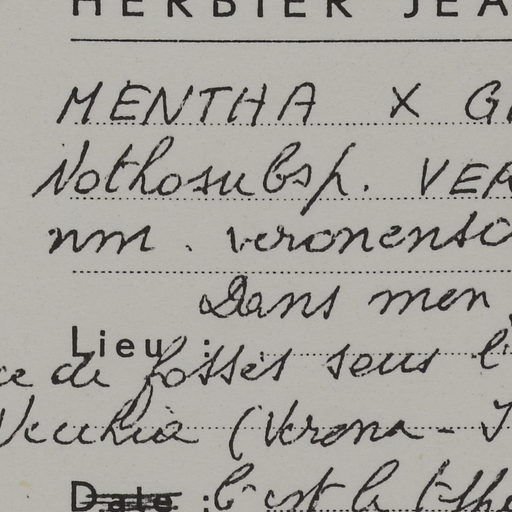 HERBIER JEA
MENTHA X G
Nothosubsp. VER
nm. veronenso
Dans mon
Lieu :
ce de fossés sous l'
Vecchia (Verona - I
Date : C'est le